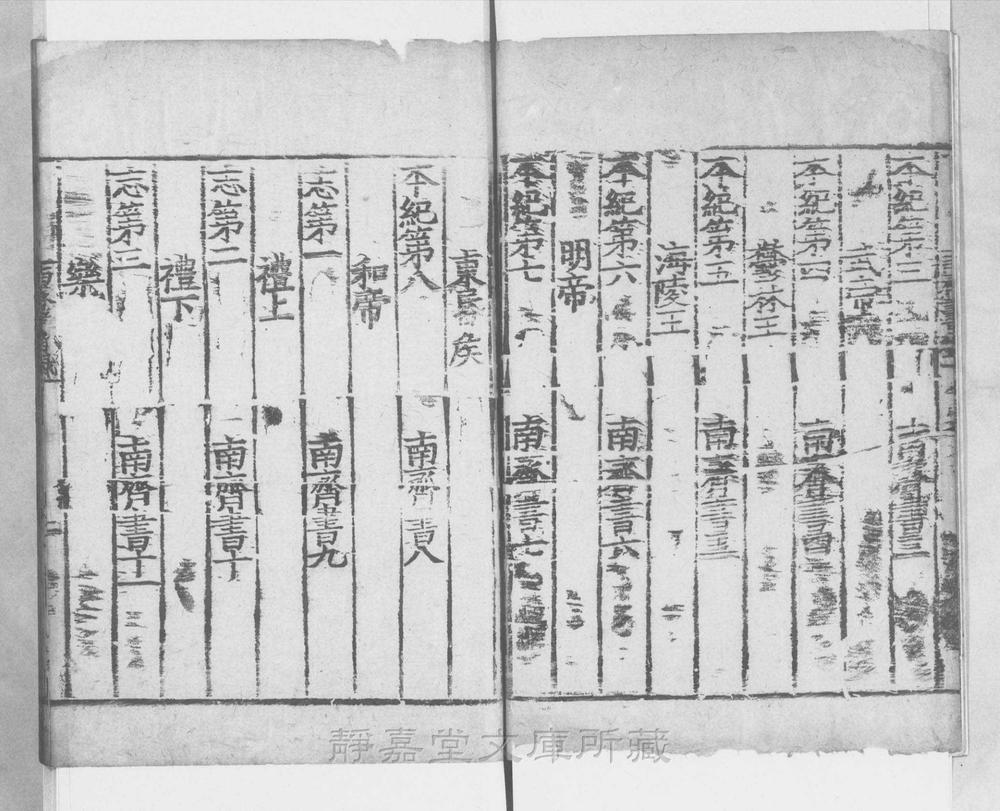 本紀第三
南齊書三
武帝
本紀第四
南齊書四
鬱林王
本紀第五
南齊書五
海陵王
本紀第六
南齊書六
明帝
本紀第七
南齊書七
東昏侯
本紀第八
南齊書八
和帝
志第一
南齊書九
禮上
志第二
南齊書十
禮下
志第三
南齊書十一
樂
靜嘉堂文庫所藏